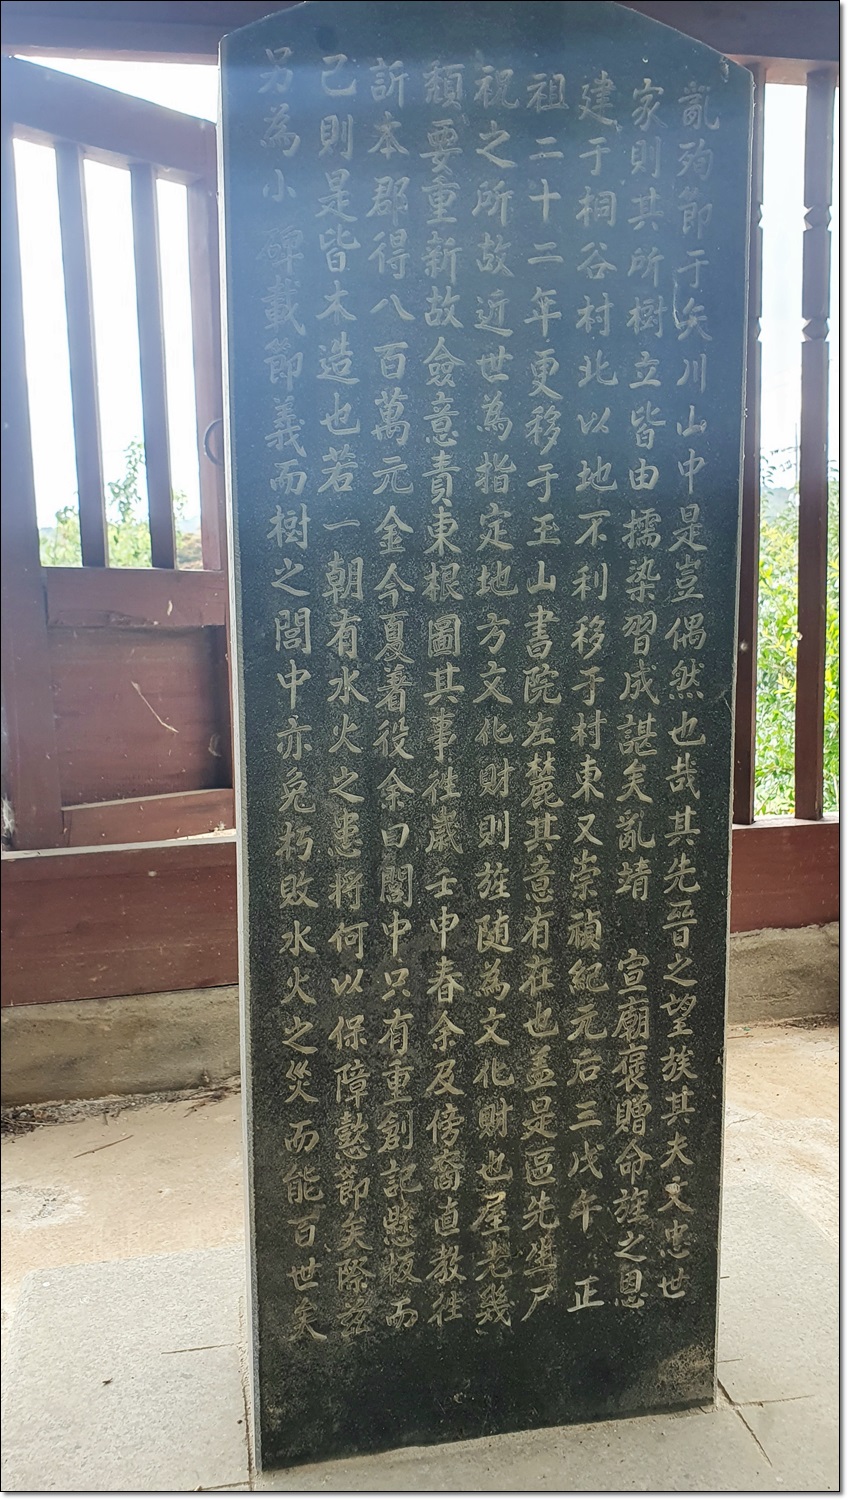 亂殉節于矢川山中是豈偶然也哉其先晉之望族其夫文忠世
家則其所樹立皆由擩染習成諶矣亂靖 宣廟褒贈命旌之恩
建于桐谷村北以地不利移于村東又崇禎紀元后三戊午 正
祖二十二年更移于玉山書院左麓其意有在也盖是區先生尸
祝之所故近世為指定地方文化財則旌随為文化財也屋老幾
頹要重新故僉意責東根圖其事徃歲壬申春余及傍裔直教徃
訴本郡得八百萬元金今夏着役余曰閭中只有重創記懸板而
已則是皆木造也若一朝有水火之患将何以保障懿節矣際茲
另為小碑載節義而樹之閭中亦免朽敗水火之災而能百世矣